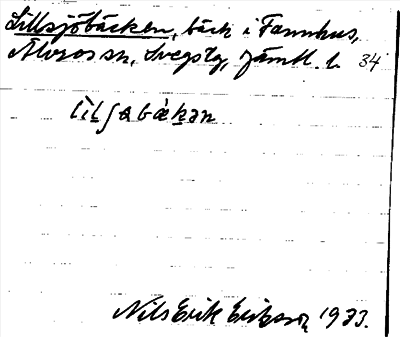 Lillsjöbäcken, bäck i Fannhus,
Älvros sn, Svegs tg, Jämtl. l. 34
lìlʃɷbák̠ən
Nils Erik Eriksson 1933.